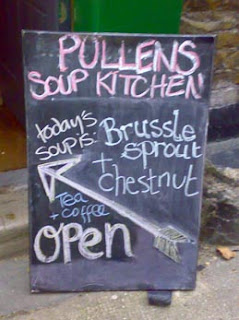 PULLENS
SOUP KITCHEN
today's
soup is:
Brussle
sprout
+ chestnut
Tea
+ coffee
OPEN